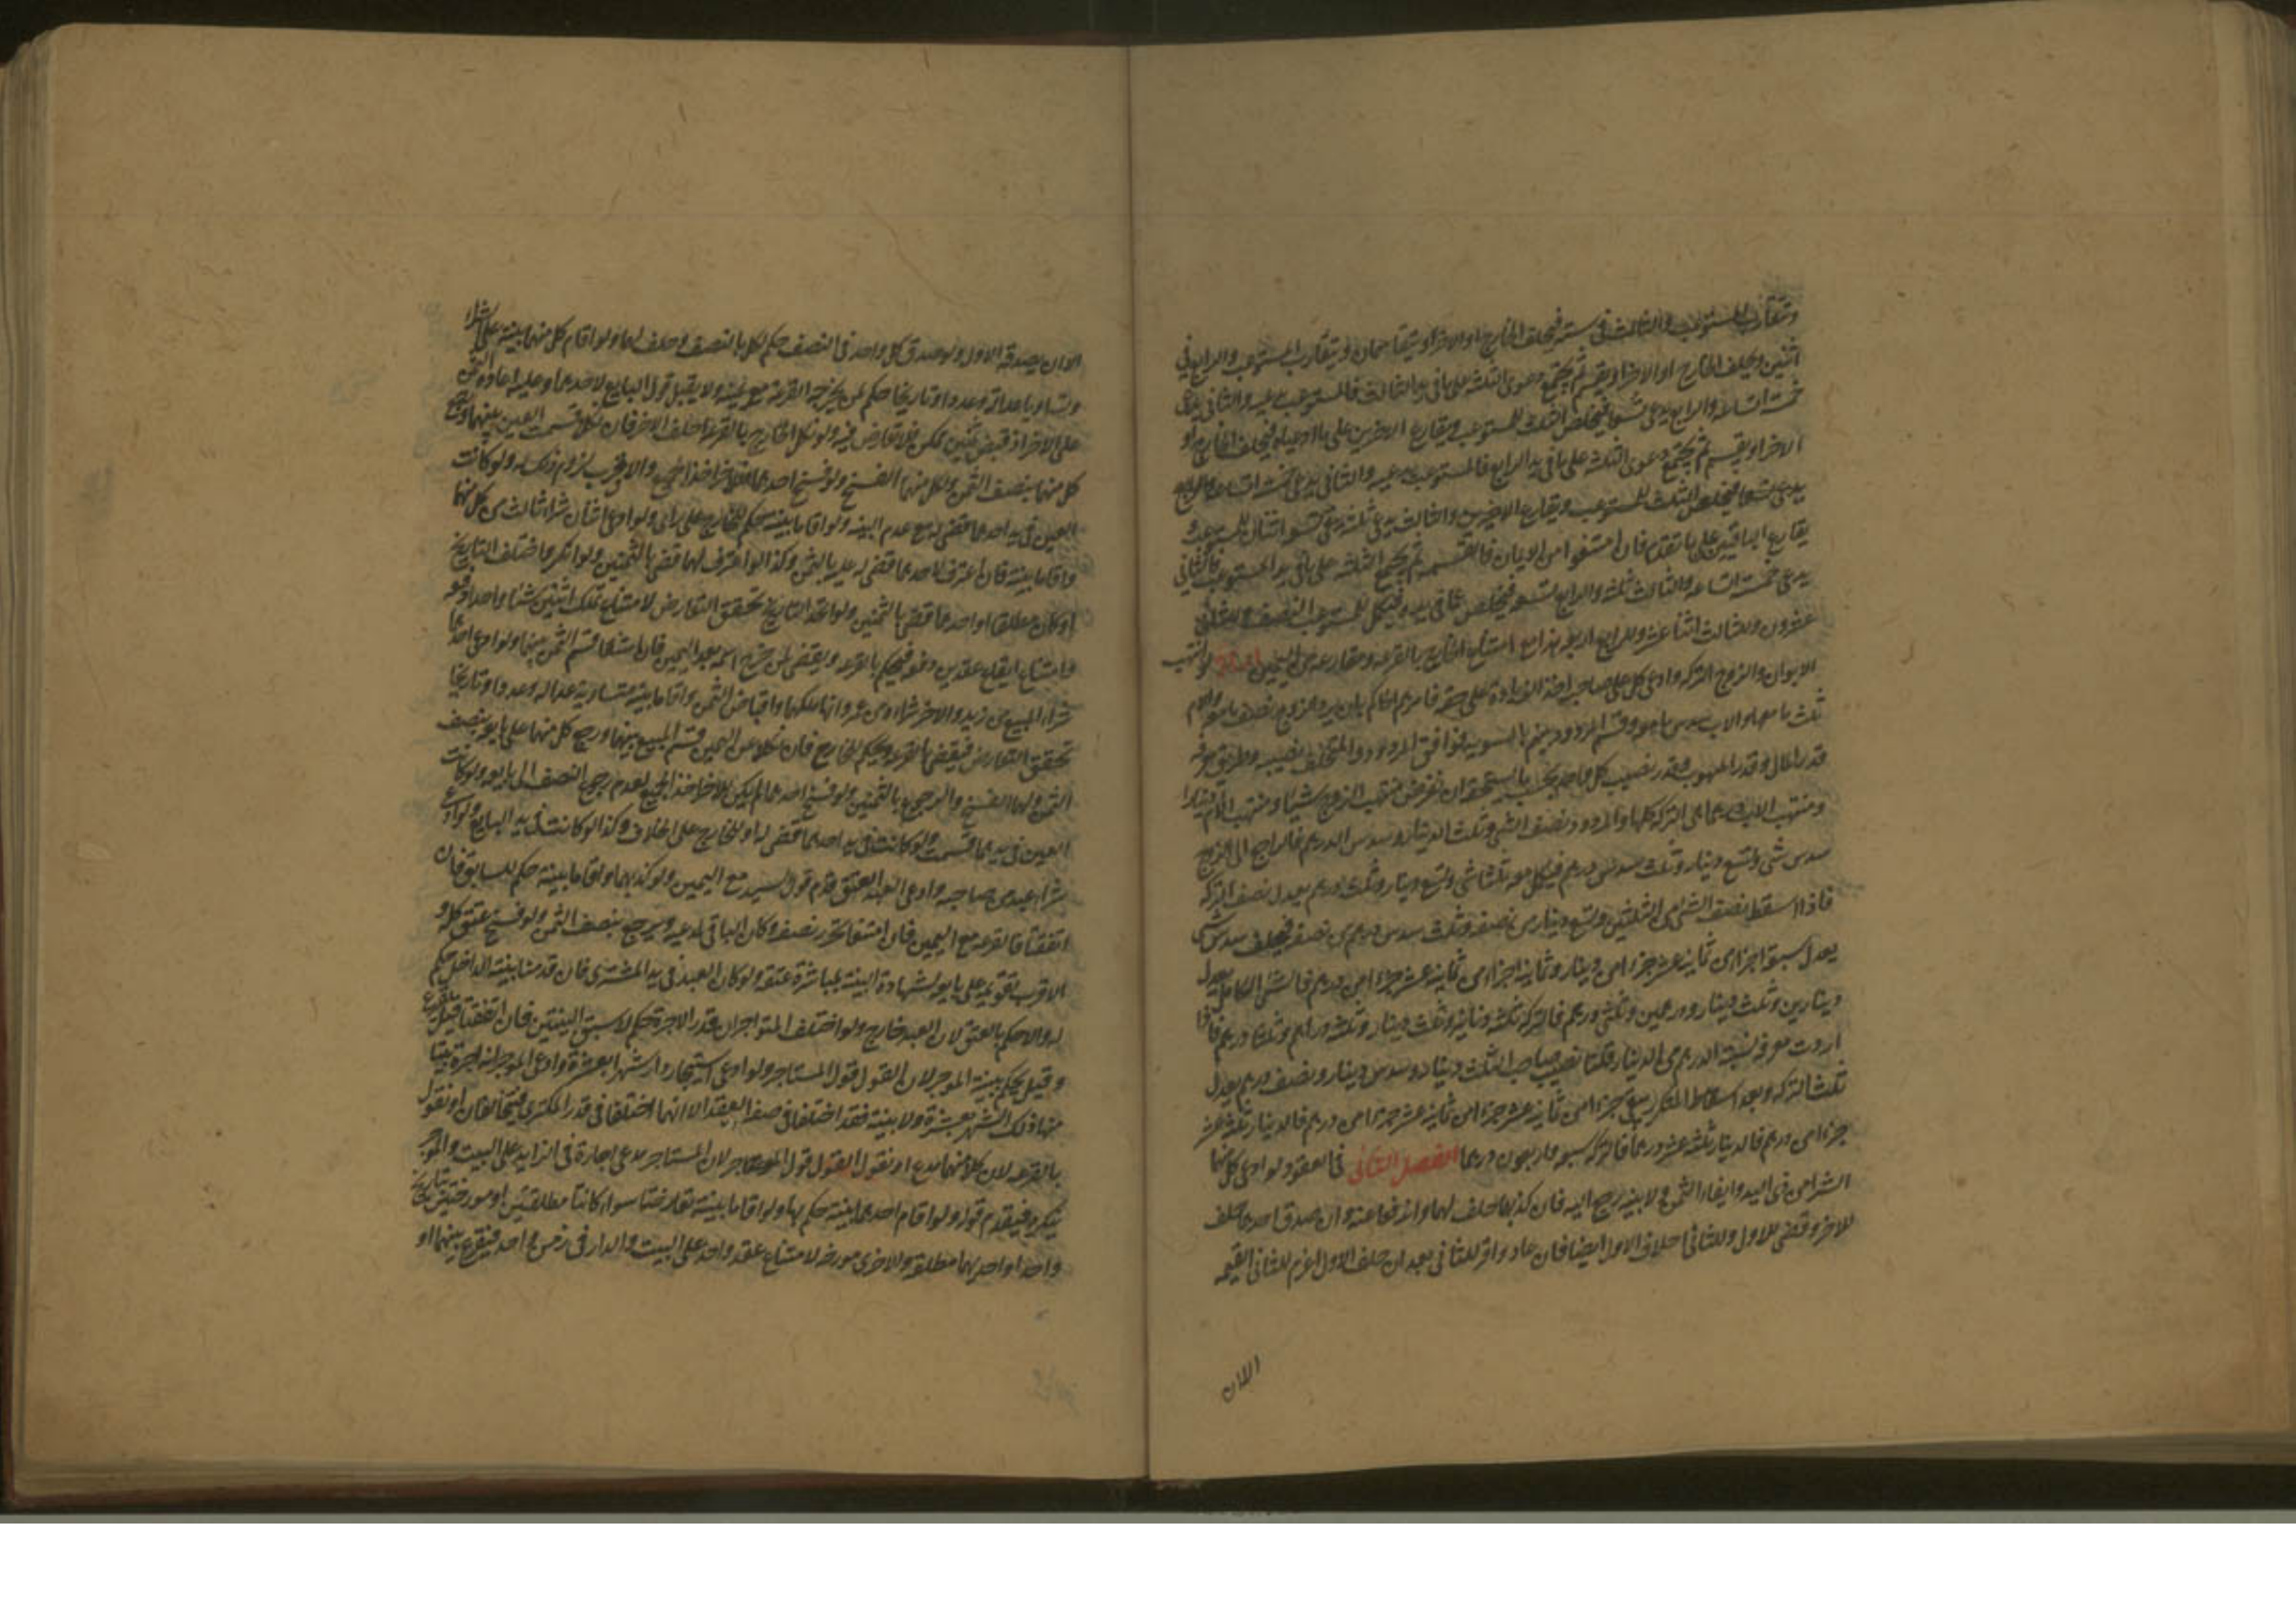 وتقارع المستوعب والثالث في ستة فيحلف الخارج او الاخر او يتقاسمان ويتقارع المستوعب والرابع في
اثنين ويحلف الخارج او الاخر او يقسم ثم يجتمع دعوى الثلثة على ما في يد الثالث فالمستوعب يدعيه والثاني يدعي
خمسة اتساعه والرابع يدعي تسعا فيخلص الثلث للمستوعب ويقارع الاخرين على ما ادعياه فيحلف الخارج او
الاخر او يقسم ثم يجتمع دعوى الثلثة على ما في يد الرابع فالمستوعب يدعيه والثاني يدعي خمسة اتساعه
يقارع الباقيين على ما تقدم فان امتنعوا من الايمان فالقسمة ثم يجمع الثلثة على ما في يد المستوعب فالثاني
يدعي خمسة اتساعه والثالث ثلثه والرابع تسعه فيخلص ثمانى يده فيكمل للمستوعب النصف وللثاني
عشرون وللثالث اثنا عشر وللرابع اربعة هذا مع امتناع الخارج بالقرعة ومقارعه من اليمين ولو انتهب
الابوان والزوج التركة وادعى كل على صاحبه اخذ الزيادة على حقه فامرهم الحاكم بان يرد الزوج نصف ما معه والام
ثلث ما معها والاب سدس ما معه وقسم المردود بينهم بالسوية فوافق المردود والمتخلف نصيبه وطريق معرفة
قدر المال وقدر المنهوب وقدر نصيب كل واحد بحسب ما يستحقه ان نفرض منتهب الزوج شيئا ومنتهب الام دينارا
ومنتهب الاب درهما هي التركة كلها والمردود نصف الشيء وثلث الدينار وسدس الدرهم فالراجع الى الزوج
سدس شيء وتسع دينار وثلث سدس درهم فيكمل معه ثلثا شيء وتسع دينار وثلث سدس درهم يعدل نصف التركة
فاذا اسقط نصف الشيء من الثلثين وتسع دينار من نصفه وثلث سدس درهم من نصفه فيخلف سدس شيء
يعدل سبعة اجزاء من ثمانية عشر جزءا من دينار وثمانية اجزاء من ثمانية عشر جزءا من درهم فالشيء الكامل يعدل
دينارين وثلث دينار ودرهمين وثلثي درهم فالتركة ثلثة دنانير وثلث دينار وثلثة دراهم وثلثا درهم فاذا
اردت معرفة نسبة الدرهم من الدينار قلنا نصيب صاحب الثلث دينار وسدس دينار ونصف درهم يعدل
ثلث التركة وبعد اسقاط المتكرر يبقى جزء من ثمانية عشر جزءا من ثمانية عشر جزءا من درهم فالدينار ثلثة عشر
جزءا من درهم فالدينار ثلثة عشر درهما فالتركة سبعة واربعون درهما الفصل الثاني في العقود لو ادعى كل منهما
الشراء من ذي اليد وايفاء الثمن ولا بينة رجع اليه فان كذبهما حلف لهما واندفعا عنه وان صدق احدهما حلف
للاخر وقضى للاول وللثاني احلاف الاول ايضا فان عاد واقر للثاني بعد ان حلف الاول اغرم للثاني القيمة
الا ان
الا ان يصدقه الاول ولو صدق كل واحد في النصف حكم لكل بالنصف وحلف لهما ولو اقام كل منهما بينة على الشراء
وتساويا عدالة وعددا وتاريخا حكم لمن يخرجه القرعة مع يمينه ولا يقبل قول البايع لاحدهما وعليه اعادة الثمن
على الاخر اذ قبض ثمنين ممكن فلا تعارض فيه ولو نكل الخارج بالقرعة احلف الاخر فان نكلا قسمت العين بينهما ورجع
كل منهما بنصف الثمن ولكل منهما الفسخ ولو فسخ احدهما فللاخر اخذ الجميع والاقرب لزوم ذلك له ولو كانت
العين في يد احدهما قضى له مع عدم البينة ولو اقاما بينة حكم للخارج على راي ولو ادعى اثنان شراء ثالث من كل منهما
واقاما بينة فان اعترف لاحدهما قضى له عليه بالثمن وكذا لو اعترف لهما قضى بالثمنين ولو انكر وما اختلف التاريخ
او كان مطلقا او احدهما قضى بالثمنين ولو اتحد التاريخ تحقق التعارض لامتناع تملك اثنين شيئا واحدا دفعة
وامتناع ايقاع عقدين دفعة فيحكم بالقرعة ويقضى لمن خرج اسمه بعد اليمين فان امتنعا قسم الثمن بينهما ولو ادعى احدهما
شراء المبيع من زيد والاخر شراءه من عمرو وانهما ملكاها واقباض الثمن واقاما بينة متساوية عدالة وعددا وتاريخا
تحقق التعارض فيقضى بالقرعة ويحكم للخارج فان نكلا عن اليمين قسم المبيع بينهما ورجع كل منهما على بايعه بنصف
الثمن ولهما الفسخ والرجوع بالثمنين ولو فسخ احدهما لم يكن للاخر اخذ الجميع لعدم رجوع النصف الى بايعه ولو كانت
العين في يدهما قسمت ولو كانت في يد احدهما قضى له او للخارج على الخلاف وكذا لو كانت في يد البايع ولو ادعى
شراء عبد من صاحبه وادعى العبد العتق قدم قول السيد مع اليمين ولو كذبهما ولو اقاما بينة حكم للسابق فان
اتفقتا فالقرعة مع اليمين فان امتنعا تحرر نصفه وكان الباقي لمدعيه ويرجع بنصف الثمن ولو فسخ عتق كله و
الاقرب تقويمه على بايعه لشهادة البينة بمباشرة عتقه ولو كان العبد في يد المشتري فان قدمنا بينة الداخل حكم
له والا حكم بالعتق لان العبد خارج ولو اختلف المتواجران في قدر الاجرة حكم لاسبق البينتين فان اتفقتا قيل يقرع
وقيل يحكم ببينة الموجر لان القول قول المستاجر ولو ادعى استيجار دار شهرا بعشرة وادعى الموجر انه اجره بيتا
منها ذلك الشهر بعشرة ولا بينة فقد اختلفا في صفة العقد الا انهما اختلفا في قدر المكترى فيتحالفان او نقول
بالقرعة لان كلا منهما مدع او نقول القول قول الموجر لان المستاجر مدعي اجارة في الزايد على البيت والموجر
ينكره فيقدم قوله ولو اقام احدهما بينة حكم بها ولو اقاما بينة تعارضتا سواء كانتا مطلقتين او مورختين بتاريخ
واحد او احديهما مطلقة والاخرى مورخة لامتناع عقد واحد على البيت والدار في زمن واحد فيقرع بينهما او